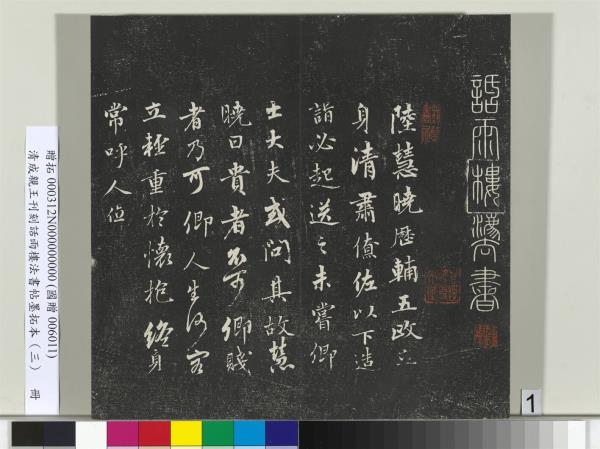 話雨樓法書
陸慧曉歷輔五政立
身清肅僚佐以下造
詣必起送之未嘗卿
士大夫或問其故慧
曉曰貴者不可卿賤
者乃可卿人生何容
立輕重於懷抱終身
常呼人位
贈拓 000312N000000000 (國贈 006011)
清成親王刊刻話雨樓法書帖墨拓本（三） 冊
1